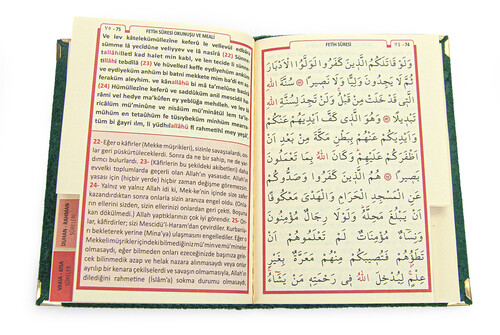 ٧٥ - 75
FETİH SÛRESİ OKUNUŞU VE MEALİ
Ve lev kâtelekümüllezîne keferû le vellevül edbâra
sümme lâ yecidûne veliyyev ve lâ nasîra (22) Sünne-
tallâhilletî kad halet min kabl, ve len tecide li sünne-
tillâhi tebdîlâ (23) Ve hüvellezî keffe eydiyehüm anküm
ve eydiyeküm anhüm bi batni mekkete mim ba'di en az-
feraküm aleyhim, ve kânallâhü bi mâ ta'melûne basîrâ
(24) Hümüllezîne keferû ve saddûküm anil mescidil ha-
râmi vel hedye ma'kûfen ey yeblüğa mehılleh, ve lev lâ
ricâlüm mü'minûne ve nisâüm mü'minâtül lem ta'le-
mûhüm en tetaûhüm fe tüsıybeküm minhüm mearra-
tüm bi ğayri ılm, li yüdhılallâhü fî rahmetihî mey yeşâ',
22- Eğer o kâfirler (Mekke müşrikleri), sizinle savaşsalardı, on-
lar geri püskürtüleceklerdi. Sonra da ne bir sahip, ne de yar-
dımcı bulurlardı. 23- (Kâfirlerin bu şekildeki akibetleri) daha
evvelki toplumlarda geçerli olan Allah'ın yasasıdır. Allah'ın
yasası için (hiçbir yerde) hiçbir zaman değişme göremezsin.
24- Yalnız ve yalnız Allah idi ki, Mek-ke'nin içinde size zafer
kazandırdıktan sonra onlarla sizin aranıza engel oldu. (Onla-
rın ellerini sizden, sizin ellerinizi onlardan geri çekti. Boşuna
kan dökülmedi.) Allah yaptıklarınızı çok iyi görendir. 25- On-
lar, kâfirdirler; sizi Mescidü'l-Haram'dan çevirdiler. Kurban-
ları bekleterek yerine (Mina'ya) ulaşmasını engellediler. Eğer o
Mekkeli müşrikler içinde kebilmediğiniz mü'min ve mü'mineler
olmasaydı, eğer bilmeden onları ezeceğinizde başınıza gele-
cek bilinmedik azap ve helak nazara alınmasaydı veya onlar
ayrılıp bir kenara çekilselerdi ve savaşın olmamasıyla, Allah'ın
dilediğini rahmetine (İslâm'a) sokma durumu olmasaydı,
DUHAN - RAHMAN
VAKIA - ENA
FETİH SÛRESİ
٧٤ - 74
وَلَوْ قَاتَلَكُمُ الَّذِينَ كَفَرُوا لَوَلَّوُا الْاَدْبَارَ
ثُمَّ لَا يَجِدُونَ وَلِيًّا وَلَا نَصِيرًا ﴿٢٢﴾ سُنَّةَ اللّٰهِ
الَّتِى قَدْ خَلَتْ مِنْ قَبْلُ وَلَنْ تَجِدَ لِسُنَّةِ اللّٰهِ
تَبْدِيلًا ﴿٢٣﴾ وَهُوَ الَّذِى كَفَّ اَيْدِيَهُمْ عَنْكُمْ
وَاَيْدِيَكُمْ عَنْهُمْ بِبَطْنِ مَكَّةَ مِنْ بَعْدِ اَنْ
اَظْفَرَكُمْ عَلَيْهِمْ وَكَانَ اللّٰهُ بِمَا تَعْمَلُونَ
بَصِيرًا ﴿٢٤﴾ هُمُ الَّذِينَ كَفَرُوا وَصَدُّوكُمْ
عَنِ الْمَسْجِدِ الْحَرَامِ وَالْهَدْىَ مَعْكُوفًا
اَنْ يَبْلُغَ مَحِلَّهُ وَلَوْلَا رِجَالٌ مُؤْمِنُونَ
وَنِسَٓاءٌ مُؤْمِنَاتٌ لَمْ تَعْلَمُوهُمْ اَنْ
تَطَؤُهُمْ فَتُصِيبَكُمْ مِنْهُمْ مَعَرَّةٌ بِغَيْرِ
عِلْمٍ لِيُدْخِلَ اللّٰهُ فِى رَحْمَتِهِ مَنْ يَشَٓاءُ